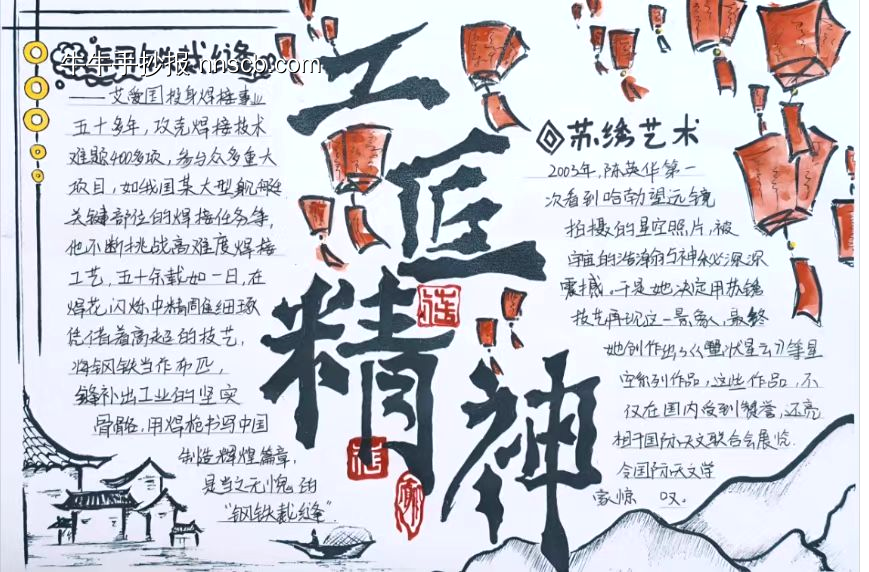 牛牛手抄报 nnscb.com
钢铁裁缝
——艾爱国投身焊接事业
五十多年，攻克焊接技术
难题400多项，参与众多重大
项目，如我国某大型舰艇
关键部位的焊接任务等，
他不断挑战高难度焊接
工艺，五十余载如一日，在
焊花闪烁中精雕细琢
凭借着高超的技艺，
将钢铁当作布匹，
缝补出工业的坚实
骨骼，用焊枪书写中国
制造辉煌篇章，
是当之无愧的
“钢铁裁缝”
工匠精神
苏绣艺术
2003年，陈英华第一
次看到哈勃望远镜
拍摄的星空照片，被
宇宙的浩瀚与神秘深深
震撼，于是她决定用苏绣
技艺再现这一景象，最终
她创作出了《蟹状星云》等星
空系列作品，这些作品，不
仅在国内受到赞誉，还亮
相于国际天文联合会展览.
令国际天文学
家惊叹.